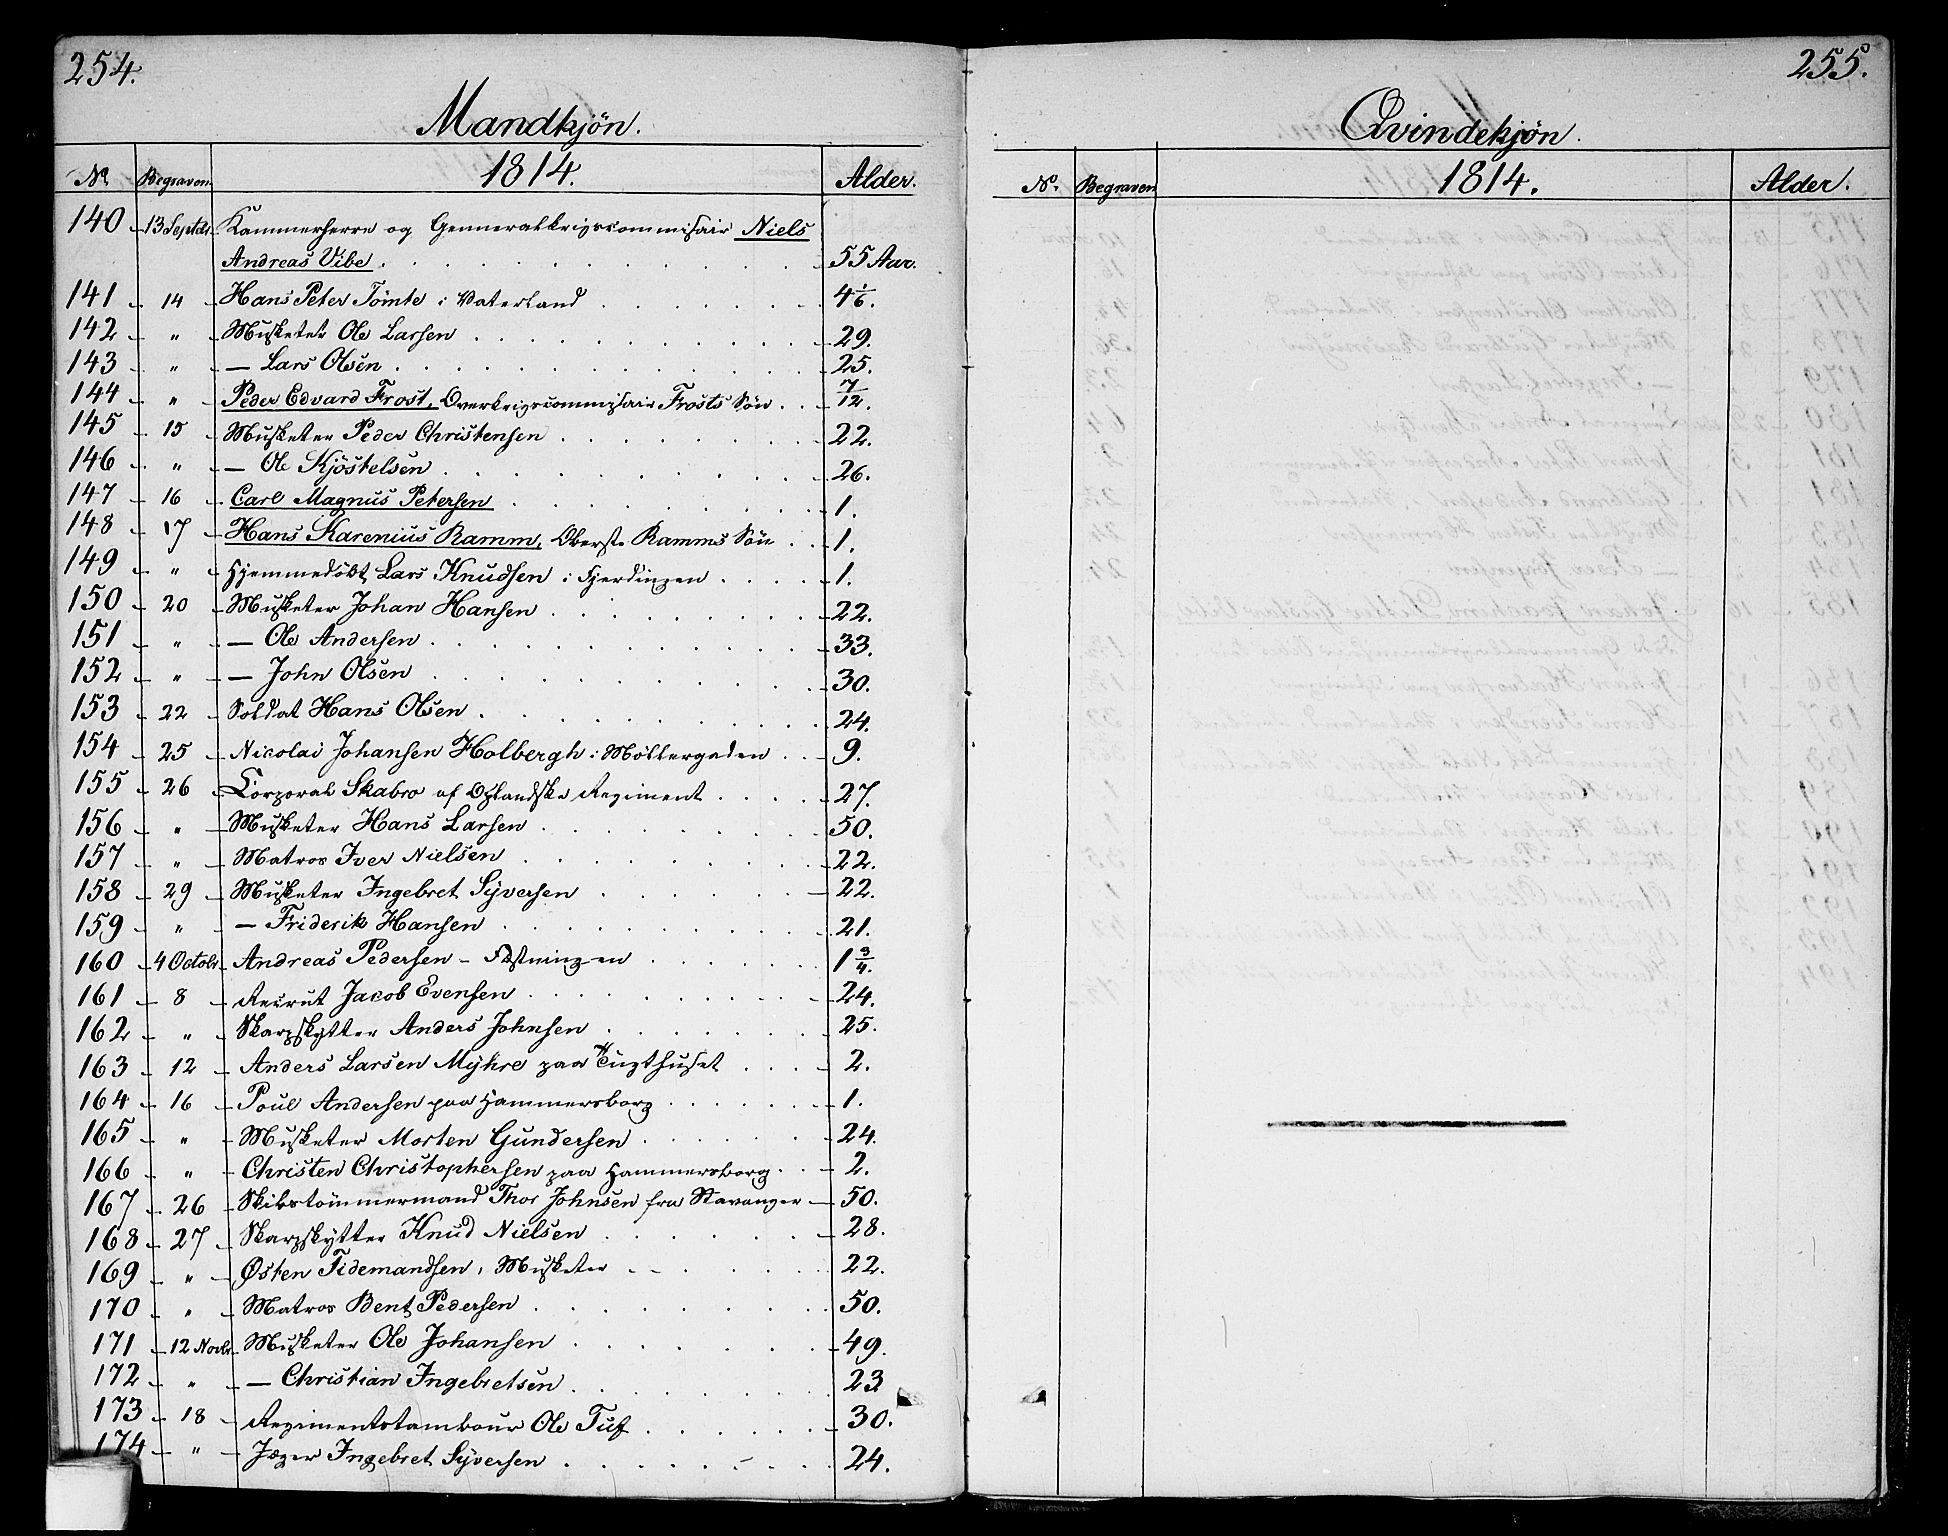 254.
Mandkjön.
No. Begraven. 1814. Alder.
140 13 Septbr. Kammerherre og Genneralkrigscommissair Niels
Andreas Vibe. 55 Aar.
141 14 Hans Peter Tömte i Vaterland 4 1/6.
142 " Musketer Ole Larsen 29.
143 " — Lars Olsen 25.
144 " Peder Edvard Frost, Overkrigscommissair Frosts Sön 7/12.
145 15 Musketer Peder Christensen 22.
146 " — Ole Kjöstelsen 26.
147 16 Carl Magnus Petersen 1.
148 17 Hans Karenius Ramm, Oberst Ramms Sön 1.
149 " Hjemmedöbt Lars Knudsen i Fjerdingen 1.
150 20 Musketer Johan Hansen 22.
151 " — Ole Andersen 33.
152 " — John Olsen 30.
153 22 Soldat Hans Olsen 24.
154 25 Nicolai Johansen Holbergh i Möllergaden 9.
155 26 Corporal Skabro af Oplandske Regiment 27.
156 " Musketer Hans Larsen 50.
157 " Matros Iver Nielsen 22.
158 29 Musketer Ingebret Syversen 22.
159 " — Friderik Hansen 21.
160 4 Octobr. Andreas Pedersen – Fæstningen 1 3/4.
161 8 Recrut Jacob Evensen 24.
162 " Skarpskytter Anders Johnsen 25.
163 12 Anders Larsen Myhre paa Tugthuset 2.
164 16 Poul Andersen paa Hammersborg 1.
165 " Musketer Morten Gundersen 24.
166 " Christen Christophersen paa Hammersborg 2.
167 26 Skibstömmermand Thor Johnsen fra Stavanger 50.
168 27 Skarpskytter Knud Nielsen 28.
169 " Østen Tidemandsen, Musketer 22.
170 " Matros Bent Pedersen 50.
171 12 Novbr. Musketer Ole Johansen 49.
172 " — Christian Ingebretsen 23
173 18 Regimentstambour Ole Tuf 30.
174 " Jæger Ingebret Syversen 24.
255.
Qvindekjön.
No. Begraven 1814. Alder.